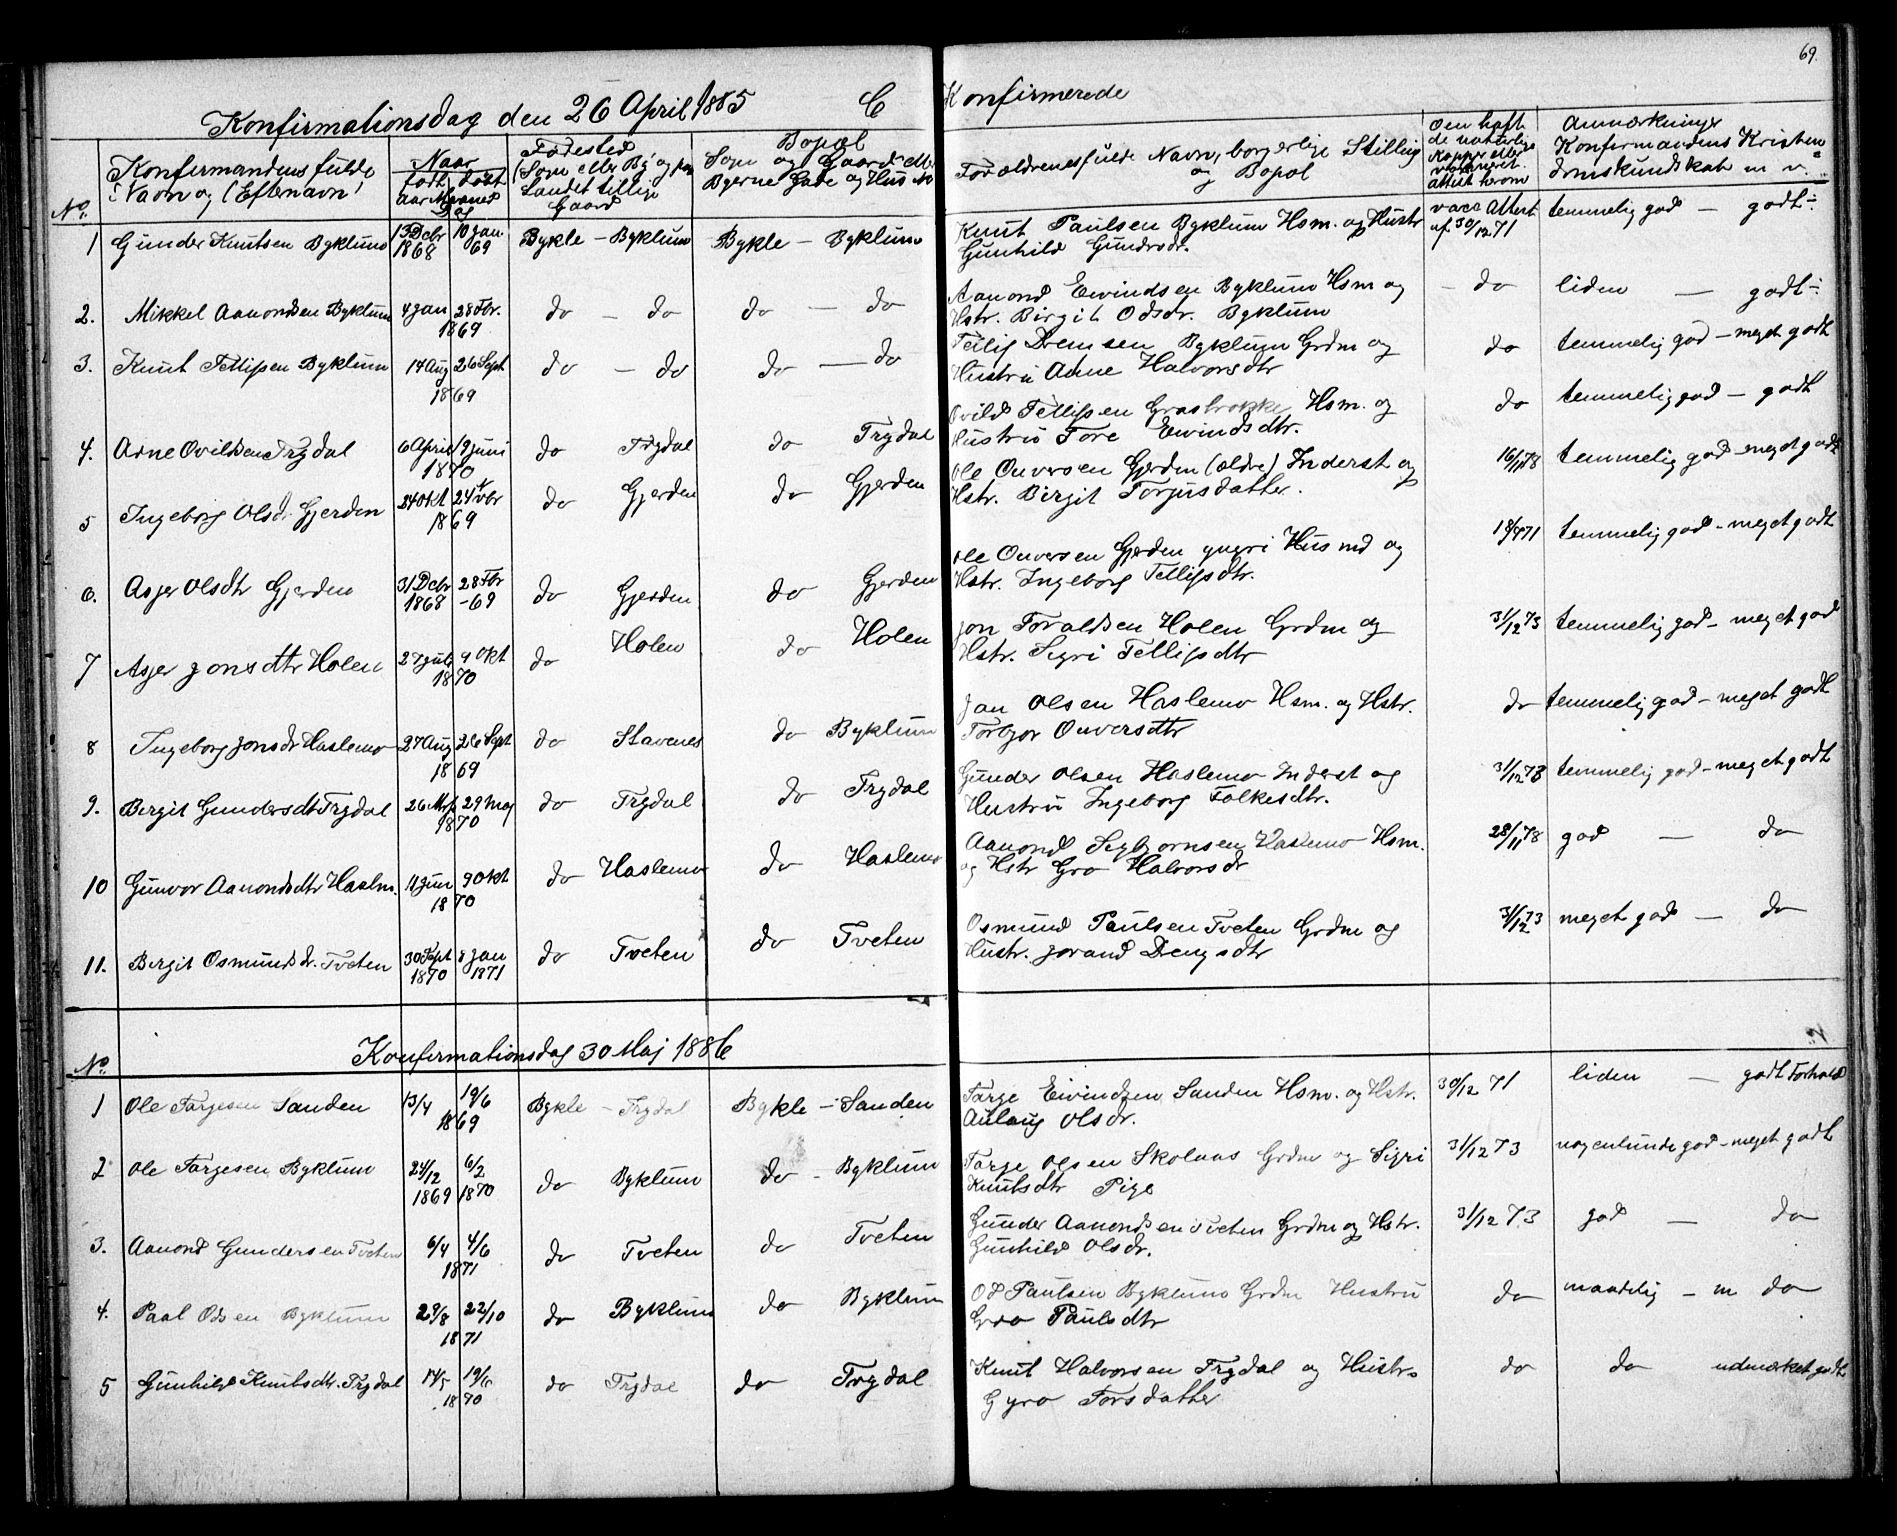 69.
Konfirmationsdag den 26 April 1885 C Konfirmerede
No. Konfirmandens fulde Navn og (Efternavn)
Naar født døbt Aar Maaned Dag
Fødested (Sogn eller By og paa Landet tillige Gaard
Bopæl Sogn og Gaard
Byerne Gade og Hus No
Forældrenes fulde Navn, borgerlige Stilling og Bopæl
Den haft de naturlige Kopper eller vaccineret. Attest herom
Anmærkninger Konfirmandens Kristendomskundskab m v.
1 Gunder Knutsen Byklum 13 Decbr 1868 10 Jan 69 Bykle - Byklum Bykle - Byklum Knut Paulsen Byklum Hsm. og Hustr vacc Attest temmelig god - godt
Gunhild Gundersdr. af 30/12 71
2. Mikkel Aanondsen Byklum 4 Jan 28 Fbr. 1869 do - do do - do Aanond Eivindsen Byklum Hsm og - do liden - godt
Hstr. Birgit Odsdr. Byklum
3. Knut Tellifsen Byklum 14 Aug 26 Sept 1869 do - do do - do Tellif Dremsen Byklum Grdm og do temmelig god - meget godt
Hustru Anne Halvorsdtr
4. Arne Ovildsen Trydal 6 April 19 Juni 1870 do Trydal do Trydal Ovild Tellifsen Grasbrokke Hsm. og do temmelig god - godt
Hustru Tore Eivindsdtr.
5 Ingeborg Olsdr Gjerden 24 Okt 24 1869 do Gjerden do Gjerden Ole Onversen Gjerden (ældre) Inderst og 16/11 78 temmelig god - meget godt
Hstr. Birgit Torjusdatter.
6. Asjer Olsdtr Gjerden 31 Decbr 1868 28 Fbr -69 do Gjerden do Gjerden Ole Onversen Gjerden yngri Husmd og temmelig god - meget godt
Hstr. Ingeborg Tellifsdtr.
7 Asjer Jonsdtr Holen 27 Juli 9 Okt 1870 do Holen do Holen Jon Toraldsen Holen Grdm og 31/12 73 temmelig god - meget god
Hstr. Sigri Tellifsdtr
8 Ingeborg Jonsdr Haslemo 27 Aug 26 Sept 1869 do Stavenes do Byklum Jon Olsen Haslemo Hsm. og Hstr. do temmelig god - meget godt
Torbjor Onversdtr
9. Birgit Gundersdt Trydal 26 29 Maj 1870 do Trydal do Trydal Gunder Olsen Haslemo Inderst og 31/12 73 temmelig god - meget godt
Hustru Ingeborg Folkesdtr.
10 Gunvor Aanondsdtr Haslm. 11 Juni 9 Okt 1870 do Haslemo do Haslemo Aanond Sigbjørnsen Haslemo Hsm. 28/11 78 god - do
og Hstr Gro Halvorsdr
11. Birgit Osmundsdr. Tveten 30 Sept 1870 8 Jan 1871 do Tveten do Tveten Osmund Paulsen Tveten Grdm og 31/12 73 meget god - do
Hustr. Jorand Drengsdtr
No. Konfirmationsdag 30 Maj 1886
1 Ole Targesen Sanden 13/4 19/6 1869 Bykle - Trydal Bykle - Sanden Targe Eivindsen Sanden Hsm. og Hstr. 30/12 71 liden - godt Forhold
Aulaug Olsdr.
2 Ole Targesen Byklum 24/12 1869 6/2 1870 do Byklum do - Byklum Targe Olsen Skolaas Grdm og Sigri 31/12 73 nogenlunde god - meget godt
Knutsdtr Pige
3. Aanond Gundersen Tveten 6/4 4/6 1871 do Tveten do Tveten Gunder Aanondsen Tveten Grdm og Hstr. 31/12 73 god - do
Gunhild Olsdr.
4. Paal Odsen Byklum 29/8 22/10 1871 do Byklum do Byklum Od Paulsen Byklum Grdm Hustru do maadelig - m do
Gro Paulsdtr
5 Gunhild Knutsdtr. Trydal 19/6 1870 do Trydal do Trydal Knut Halvorsen Trydal og Hustr. do do udmærket godt
Gyro Torsdatter